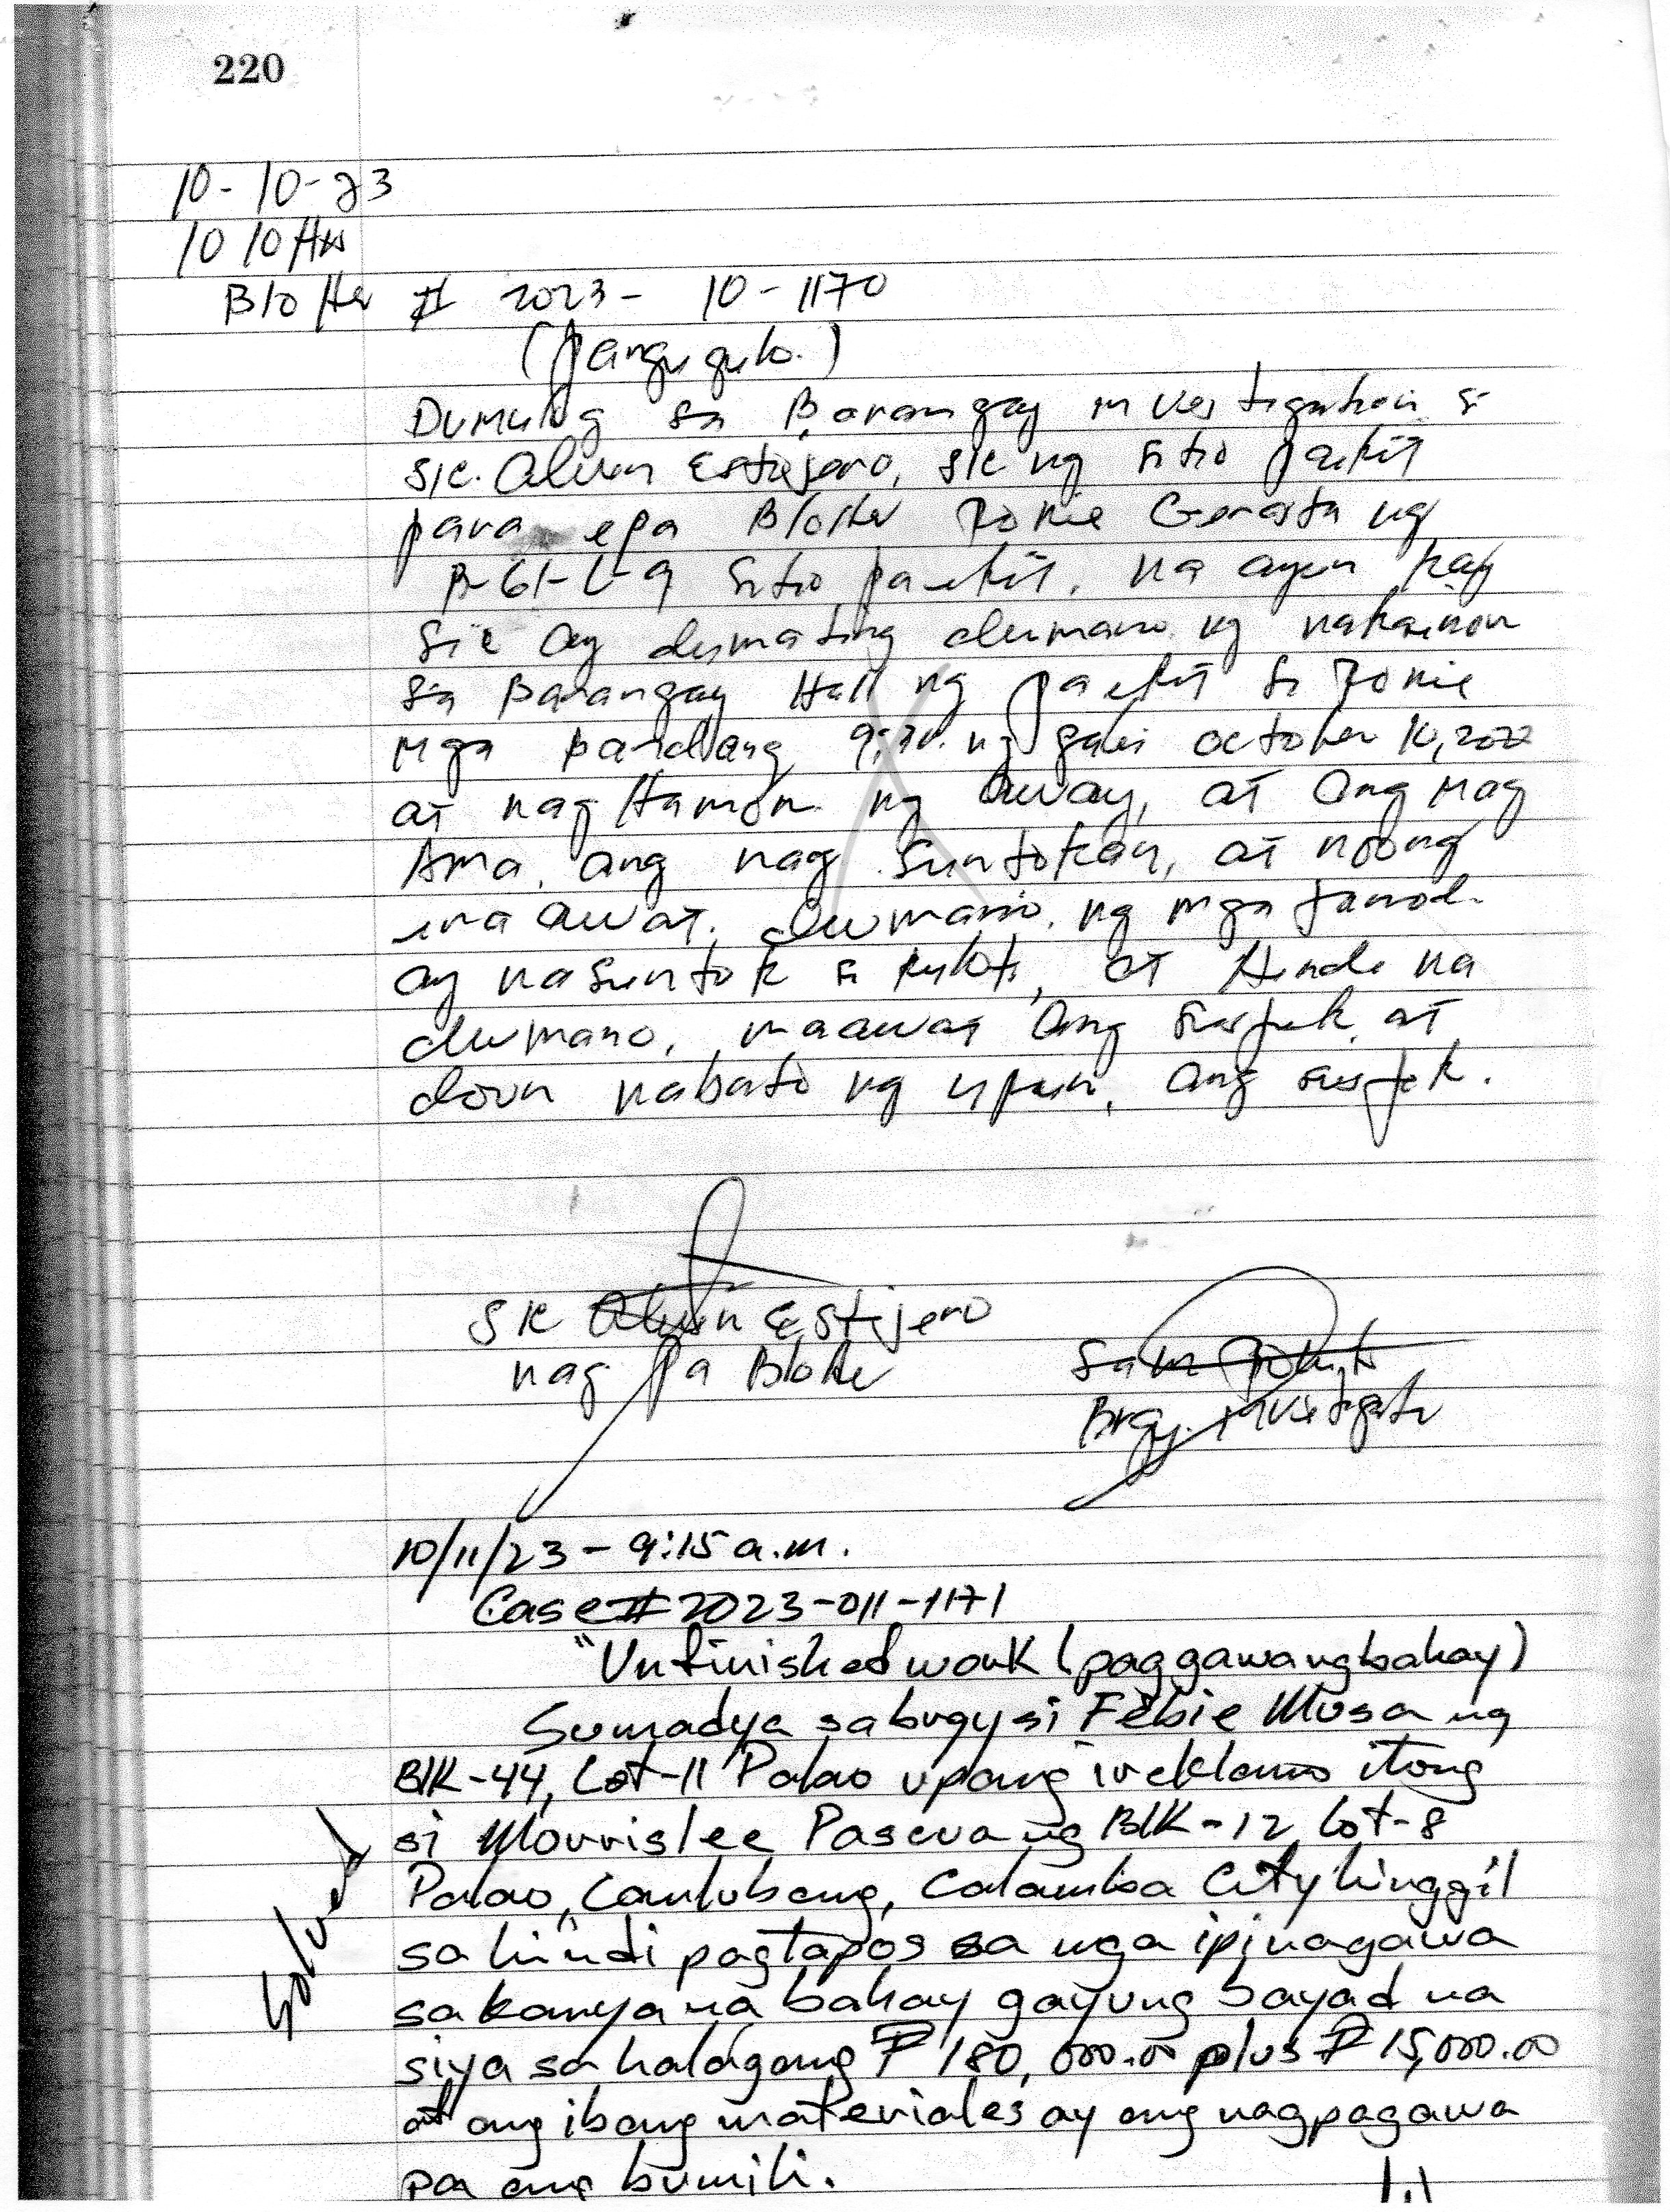 220
10-10-23
10 10 Hrs
Blotter # 2023- 10-1170
(Pangugulo.)
Dumulog sa Barangay investigation si
SK. Alvin Estijero, SK ng Sitio paekit
para epa Blotter Ronie Gerasta ng
B-61-L-9 Sitio paekit. na ayun kay
SK ay dumating dumano ng nakainom
sa Barangay Hall ng paekit si Ronie
mga bandang ng gabi october 10,
at nag Hamon ng away, at ang mag
Ama, ang nag suntokan, at noong
ina awat. dumano. ng mga tanod.
ay nasuntok si at Hinde na
dumano, maawat ang suspek, at
doon nabato ng ang suspek.
SK Alvin Estijero
nag pa Blotter
Sam
Brgy. investigator
10/11/23 - 9:15 a.m.
Case # 2023-011-1171
"Unfinished work (paggawa ng bahay)
Sumadya sa brgy si Febie Musa ng
Blk-44, Lot-11 Palao upang ireklamo itong
si Morrislee Pascua ng Blk-12 Lot-8
Palao, Canlubang, Calamba City hinggil
sa hindi pagtapos sa mga ipinagawa
sa kanya na bahay gayung bayad na
siya sa halagang ₱ 180,000.00 plus ₱ 15,000.00
at ang ibang materiales ay ang nagpagawa
pa ang bumili.
Solved